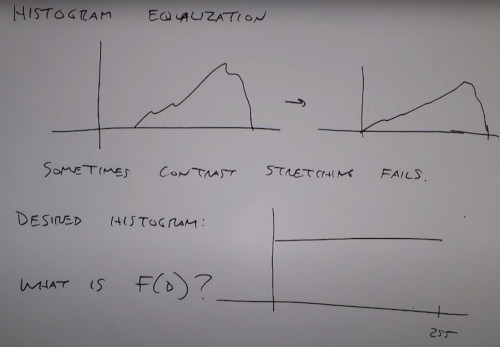 HISTOGRAM EQUALIZATION
SOMETIMES CONTRAST STRETCHING FAILS.
DESIRED HISTOGRAM:
WHAT IS F(D)?
255